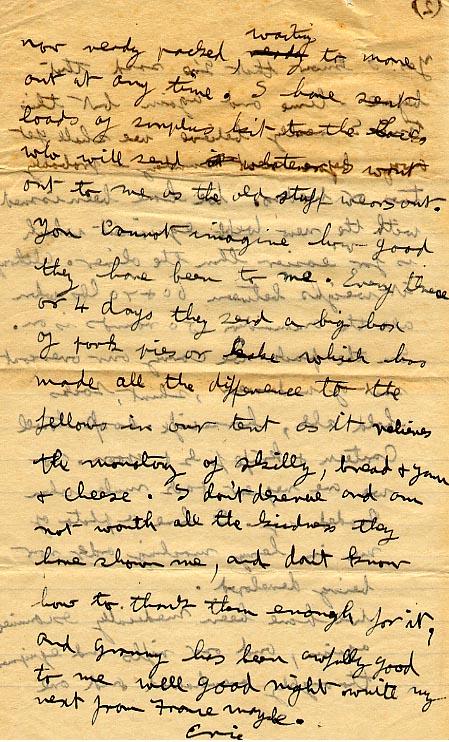 (2)
now ready packed waiting ready to move
out at any time. I have sent
loads of surplus kit to the
who will send it whatever I want
out to me as the old stuff wears out.
You cannot imagine how good
they have been to me. Every three
or 4 days they send a big box
of pork pies or cake which has
made all the difference to the
fellows in our tent as it relieves
the monotony of skilly, bread & jam
& cheese. I don't deserve and am
not worth all the kindness they
have shown me, and don't know
how to thank them enough for it,
and Granny has been awfully good
to me well good night write my
next from France maybe.
Eric